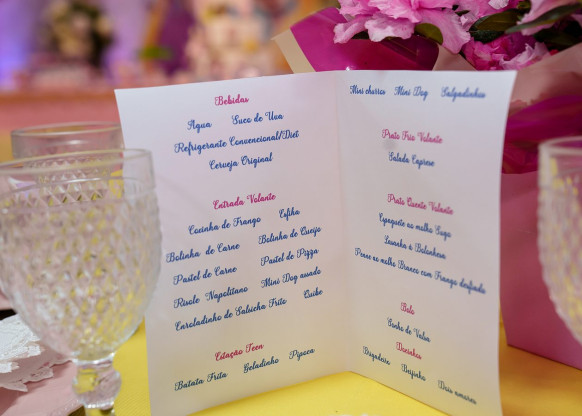 Bebidas
Agua Suco de Uva
Refrigerante Convencional/Diet
Cerveja Original
Entrada Volante
Coxinha de Frango Esfiha
Bolinha de Carne Bolinha de Queijo
Pastel de Carne Pastel de Pizza
Risole Napolitano Mini Dog assado
Enroladinho de Salsicha Frito Quibe
Estação Teen
Batata Frita Geladinho Pipoca
Mini churros Mini Dog Salgadinhos
Prato Frio Volante
Salada Caprese
Prato Quente Volante
Espaguete ao molho Sugo
Lasanha à Bolonhesa
Penne ao molho Branco com Frango desfiado
Bolo
Sonho de Valsa
Docinhos
Brigadeiro Beijinho Dois amores